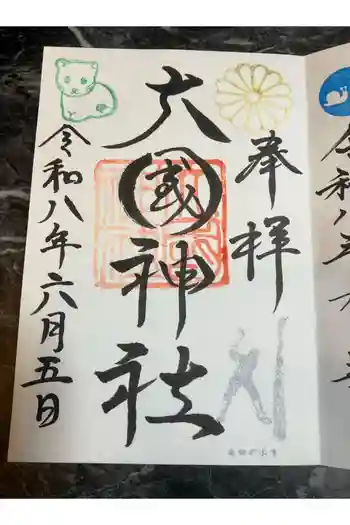 奉拝
大國神社
令和八年六月五日
令和八年六